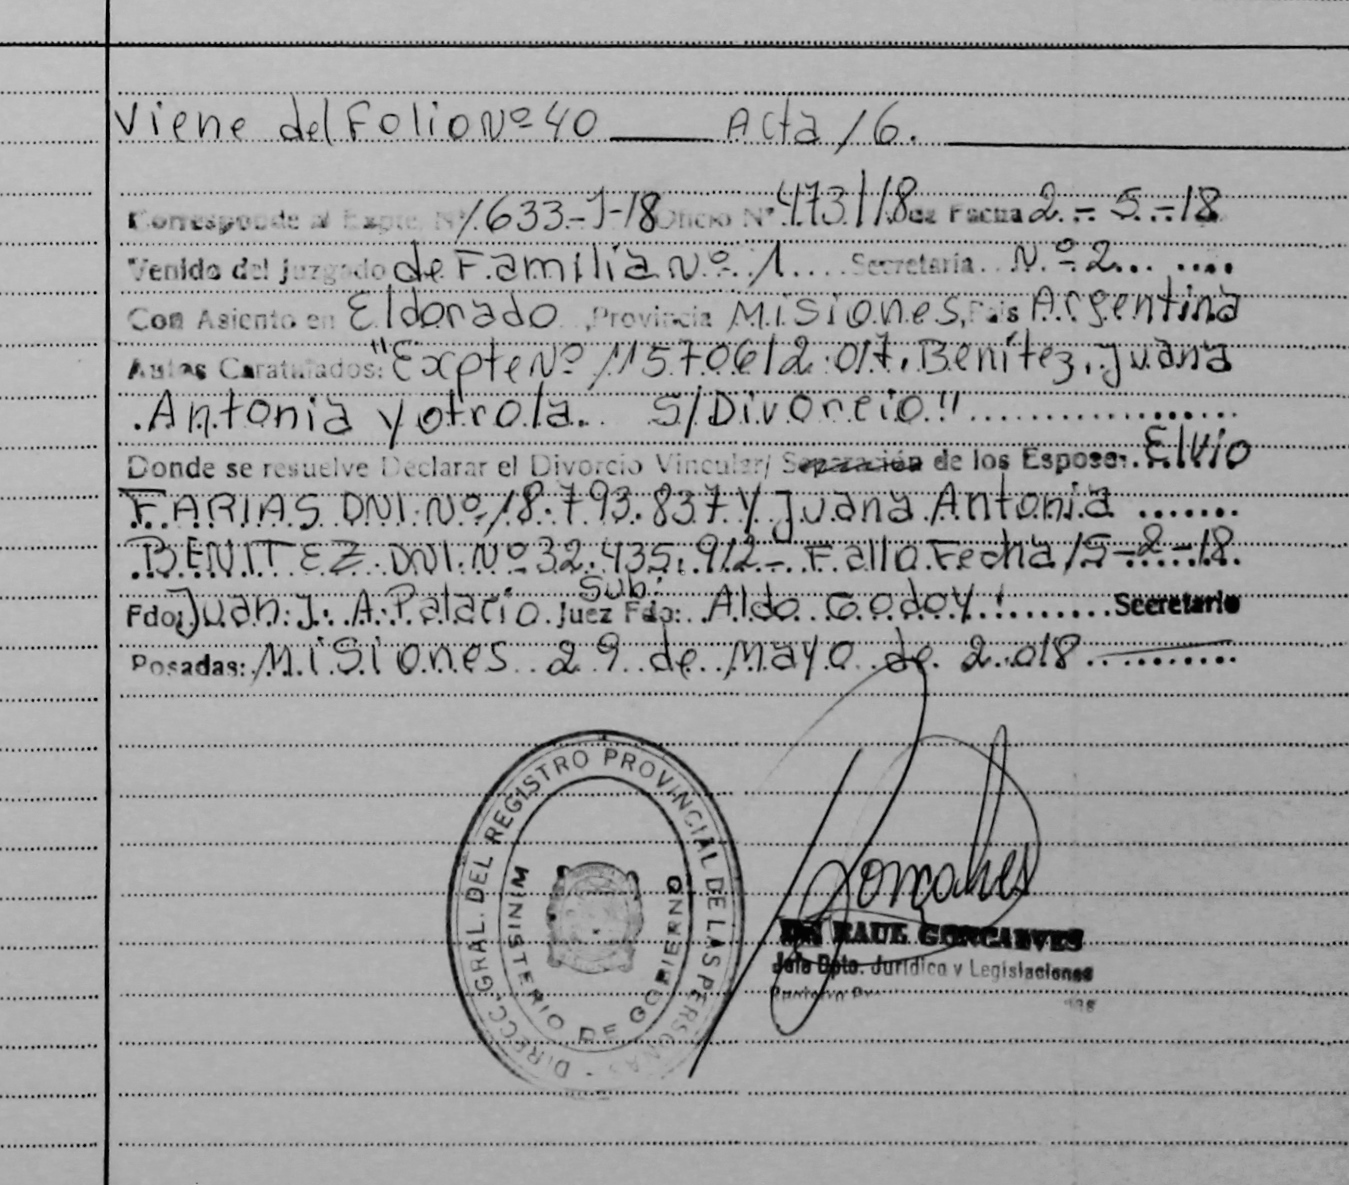 Viene del Folio Nº 40 ____ Acta 16.
Corresponde al Expte. Nº 1633-J-18 Oficio Nº 473/18 de Fecha 2.-5.-18
Venido del juzgado de Familia Nº 1.... Secretaría.. Nº 2... ....
Con Asiento en Eldorado, Provincia Misiones, País Argentina
Autos Caratulados: "Expte Nº 115706/2.017. Benítez, Juana
Antonia y otro/a.. S/Divorcio"..................
Donde se resuelve Declarar el Divorcio Vincular/ Separación de los Esposos. Elvio
FARIAS DNI. Nº 18.793.837 y Juana Antonia .......
BENITEZ DNI. Nº 32.435.912-. Fallo Fecha 15-2-18.
Sub.
Fdo: Juan J. A. Palacio. Juez Fdo: Aldo Godoy!........ Secretario
Posadas: Misiones 29 de Mayo de 2.018..........
DIRECC. GRAL. DEL REGISTRO PROVINCIAL DE LAS PERSONAS
MINISTERIO DE GOBIERNO
Goncalves
RAUL GONCALVES
Jefe Dpto. Jurídico y Legislaciones